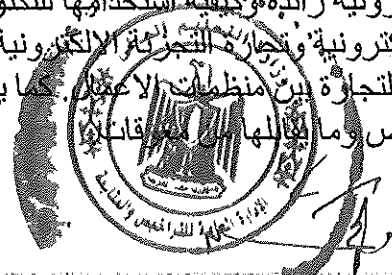 رونية رائدة وكيفية استخدامها للتكنو
كترونية وتجارة التجزئة الالكترونية
لتجارة بين منظمات الاعمال. كما ي
س وما يقابلها من معوقات
وزارة التعليم العالي
الإدارة العامة للتراخيص والمتابعة